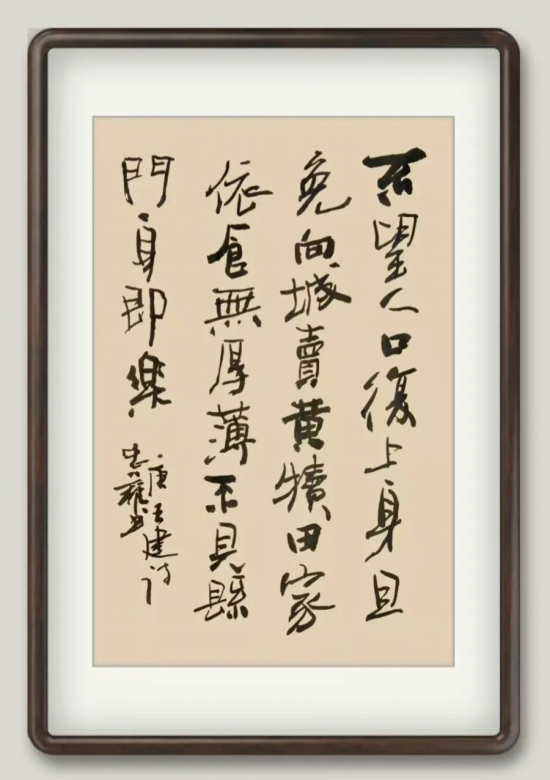 不望入口復上身且
免向城賣黄犢田家
依食無厚薄不見縣
門身即樂
唐王建詩